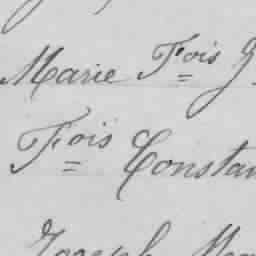 Marie F^ois
F^ois Constan
Joseph